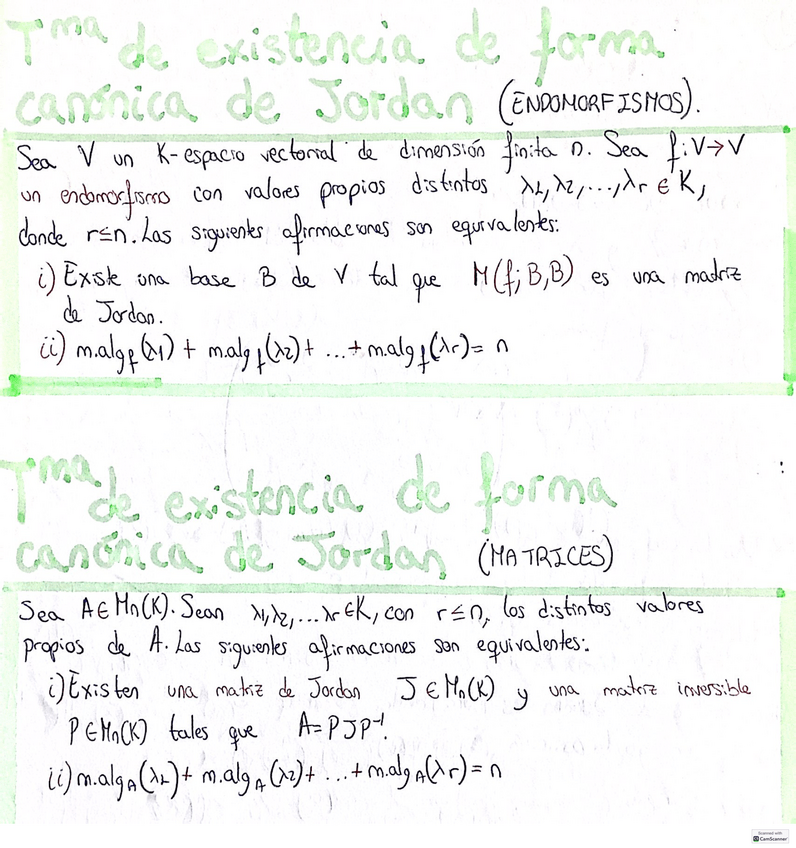 Tma de existencia de forma
canónica de Jordan (ENDOMORFISMOS).
Sea V un K-espacio vectorial de dimensión finita n. Sea f:V→V
un endomorfismo con valores propios distintos λ1, λ2, ..., λr ∈ K,
donde r≤n. Las siguientes afirmaciones son equivalentes:
i) Existe una base B de V tal que M(f; B,B) es una matriz
de Jordan.
ii) m.alg f(λ1) + m.alg f(λ2) + ... + m.alg f(λr) = n
Tma de existencia de forma
canónica de Jordan (MATRICES)
Sea A∈Mn(K). Sean λ1, λ2, ... λr ∈K, con r≤n, los distintos valores
propios de A. Las siguientes afirmaciones son equivalentes:
i) Existen una matriz de Jordan J∈Mn(K) y una matriz inversible
P∈Mn(K) tales que A=PJP⁻¹.
ii) m.alg A(λ1) + m.alg A(λ2) + ... + m.alg A(λr) = n
Scanned with
CamScanner